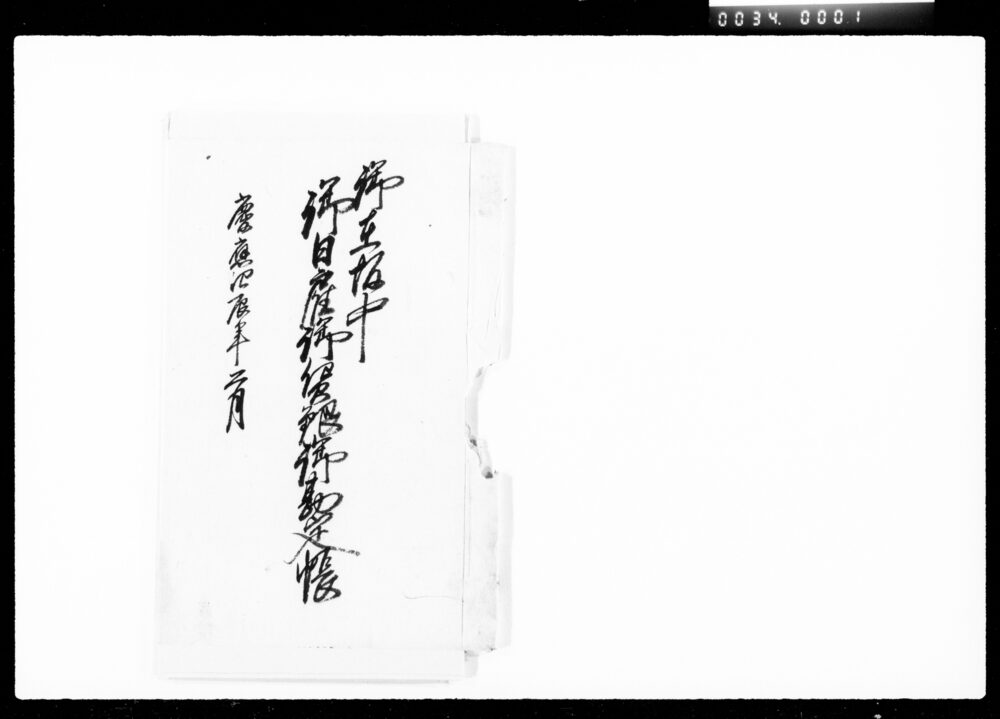 0034.0001
御在坂中
御日雇御賃銀御勘定帳
慶應四辰年二月